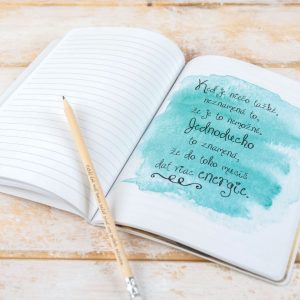 Keď je niečo ťažké,
neznamená to,
že je to nemožné.
Jednoducho
to znamená,
že do toho musíš
dať viac energie.